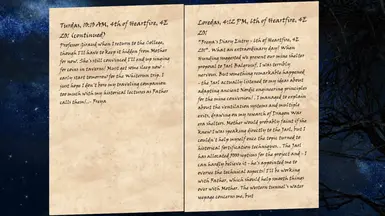 Turdas, 10:13 AM, 4th of Heartfire, 4E
201 (continued)
Professor Giraud when I return to the College,
though I'll have to keep it hidden from Mother
for now! She's still convinced I'll end up singing
for coins in taverns! Must get some sleep and
early start tomorrow for the Whiterun trip. I
just hope I don't bore my traveling companion
too much with my historical lectures as Father
calls them!.. - Freya.
Loredas, 4:22 PM, 5th of Heartfire, 4E
201
"Freya's Diary Entry - 5th of Heartfire, 4E
201". What an extraordinary day! When
we presented our mine shelter
proposal to Jarl Balgruuf, I was terribly
nervous. But something remarkable happened
- the Jarl actually listened to my ideas about
adapting ancient Nordic engineering principles
for the mine conversion! . I managed to explain
about the ventilation systems and multiple
exits, drawing on my research of Dragon War
era shelters. Mother would probably faint if she
knew I was speaking directly to the Jarl, but I
couldn't help myself once the topic turned to
historical fortification techniques... The Jarl
has allocated 5000 septims for the project and - I
can hardly believe it - he's appointed me to
oversee the technical aspects! I'll be working
with Father, which should help smooth things
over with Mother. The western tunnel's water
seepage concerns me, but